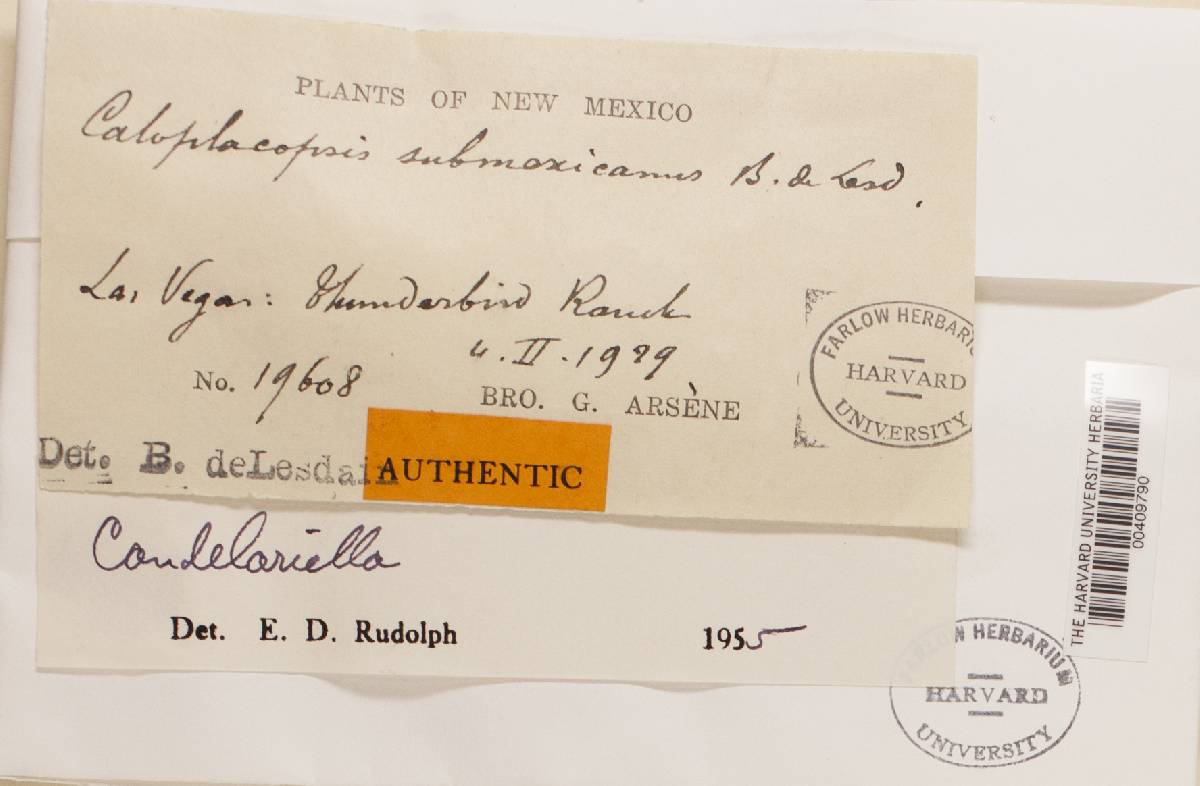 PLANTS OF NEW MEXICO
Caloplacopsis submexicanus B. de Lesd.
Las Vegas: Thunderbird Ranch
4.II.1929
No. 19608
BRO. G. ARSÈNE
FARLOW HERBARIU
HARVARD
UNIVERSITY
Det. B. deLesdain
AUTHENTIC
Candelariella
Det. E. D. Rudolph 1955
THE HARVARD UNIVERSITY HERBARIA
00409790
FARLOW HERBARIUM
HARVARD
UNIVERSITY